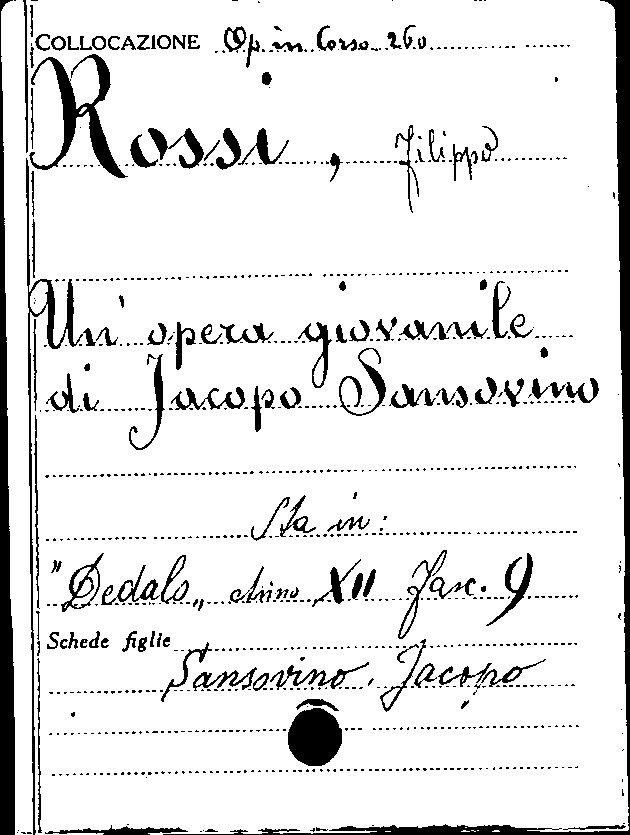 COLLOCAZIONE Op. in Corso 260
Rossi, Filippo
Un' opera giovanile
di Jacopo Sansovino
Sta in:
"Dedalo„ Anno XII Fasc. 9
Schede figlie
Sansovino, Jacopo